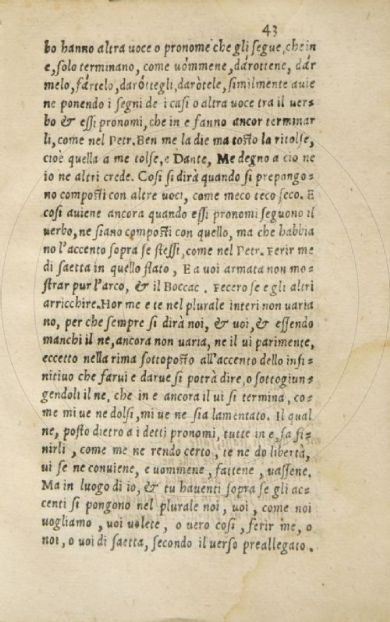 43
bo hanno altra uoce o pronome che gli segue, che in
e, solo terminano, come uómmene, dárottene, dár
melo, fártelo, daróttegli, darótele, similmente auie
ne ponendo i segni de i casi o altra uoce tra il uer=
bo & essi pronomi, che in e fanno ancor terminar
li, come nel Petr. Ben me la die ma tosto la ritolse,
cioè quella a me tolse, e Dante, Me degno a cio ne
io ne altri crede. Cosi si dirà quando si prepongo=
no composti con altre uoci, come meco teco seco. E
cosi auiene ancora quando essi pronomi seguono il
uerbo, ne siano composti con quello, ma che habbia
no l'accento sopra se stessi, come nel Petr. Ferir me
di saetta in quello stato, E a voi armata non mo=
strar pur l'arco, & il Boccac. Fecero se e gli altri
arricchire. Hor me e te nel plurale interi non uaria
no, per che sempre si dirà noi, & uoi, & essendo
manchi il ne, ancora non uaria, ne il ui parimente,
eccetto nella rima sottoposto all'accento dello infi=
nitiuo che farui e darue si potrà dire, o sottogiun=
gendoli il ne, che in e ancora il ui si termina, co=
me mi ue ne dolsi, mi ue ne sia lamentato. Il qual
ne, posto dietro a i detti pronomi, tutte in e, fa fi=
nirli, come me ne rendo certo, te ne do libertà,
ui se ne conuiene, e uommene, fattene, uassene.
Ma in luogo di io, & tu hauenti sopra se gli ac=
centi si pongono nel plurale noi, uoi, come noi
uogliamo, uoi uolete, o uero cosi, ferir me, o
noi, o uoi di saetta, secondo il uerso preallegato.